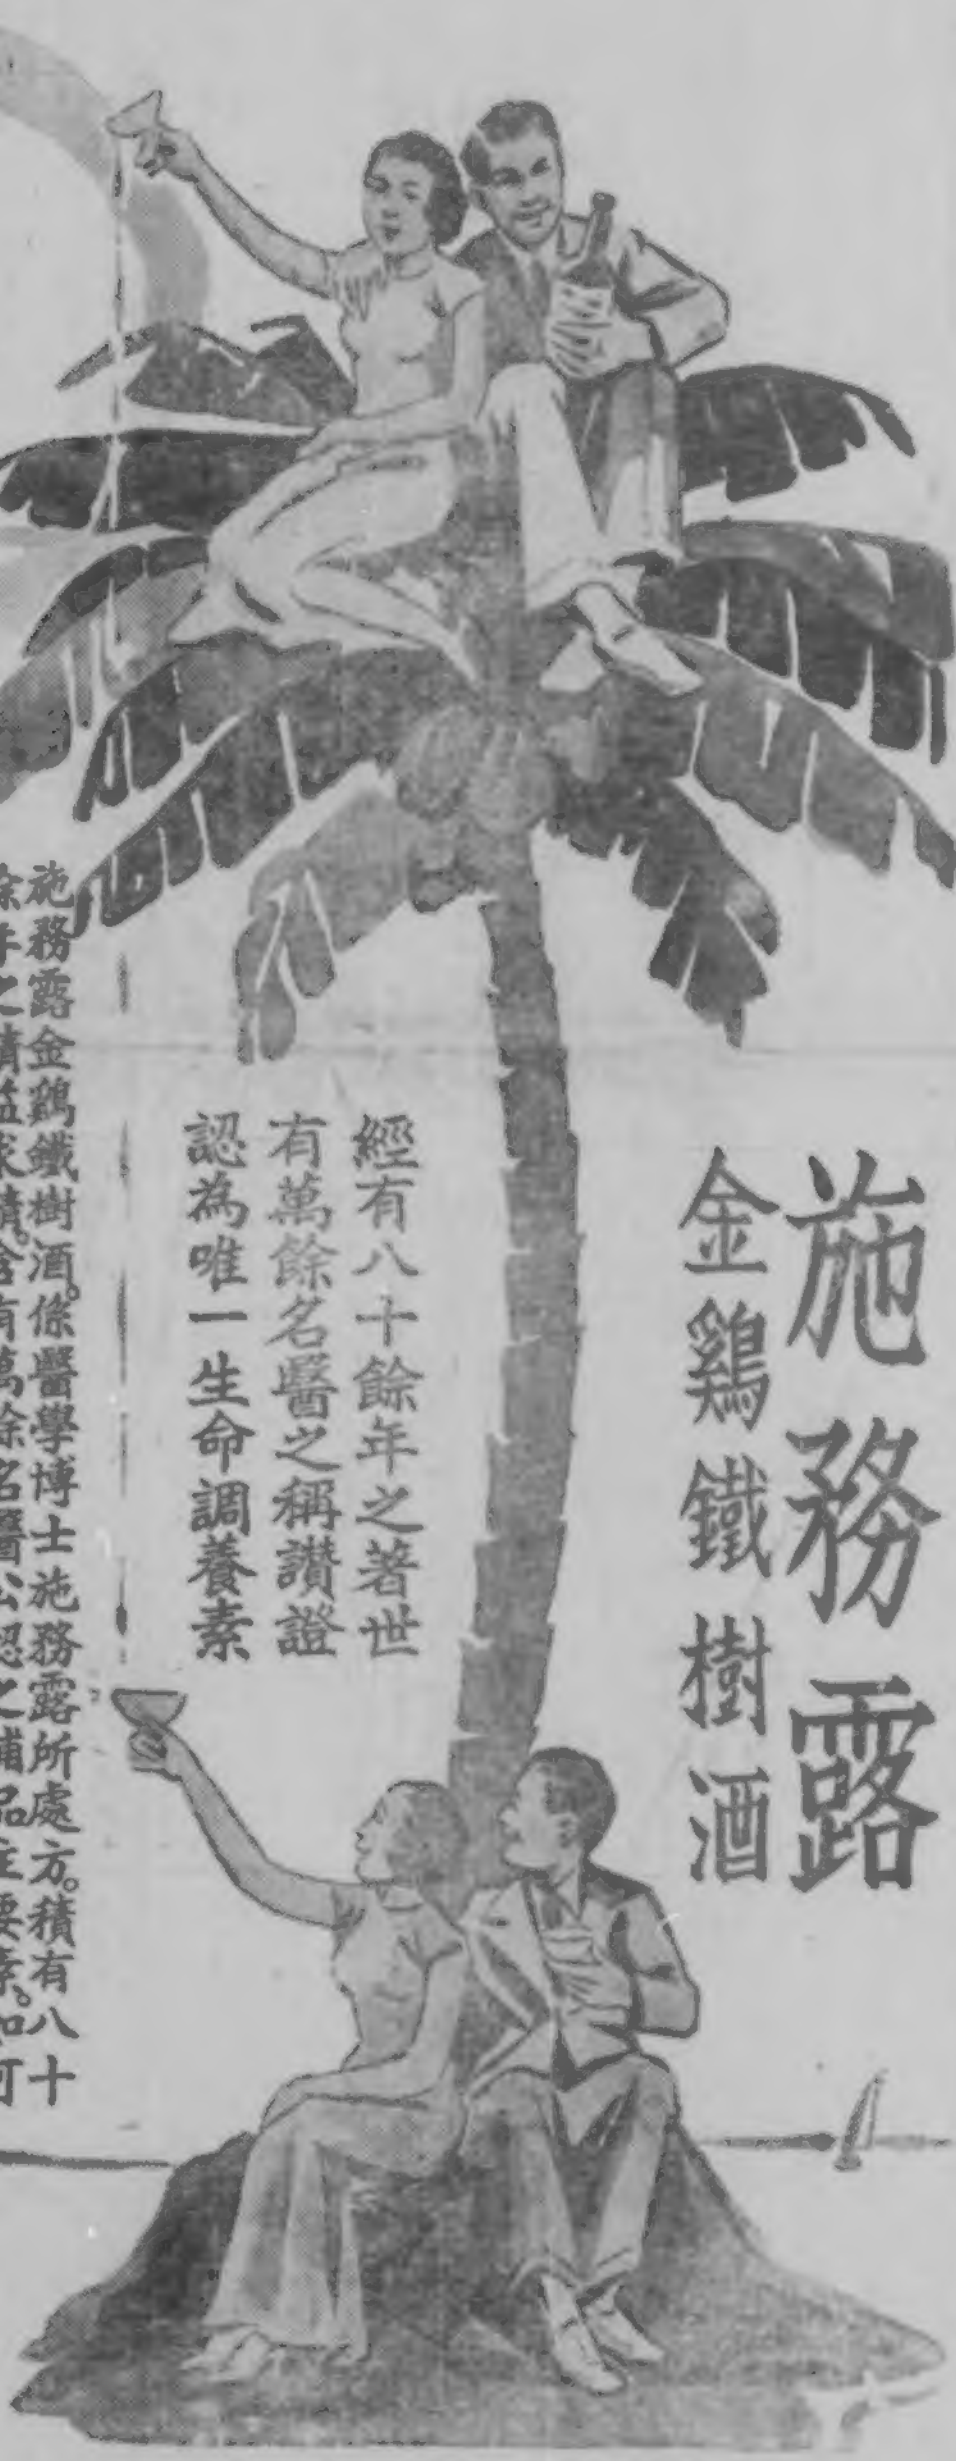 施務露
金鷄鐵樹酒
經有八十餘年之著世
有萬餘名醫之稱讚證
認為唯一生命調養素
施務露金鷄鐵樹酒。係醫學博士施務露所處方。積有八十
餘年之精益求精。含有萬餘名醫公認之補品主要素。如可